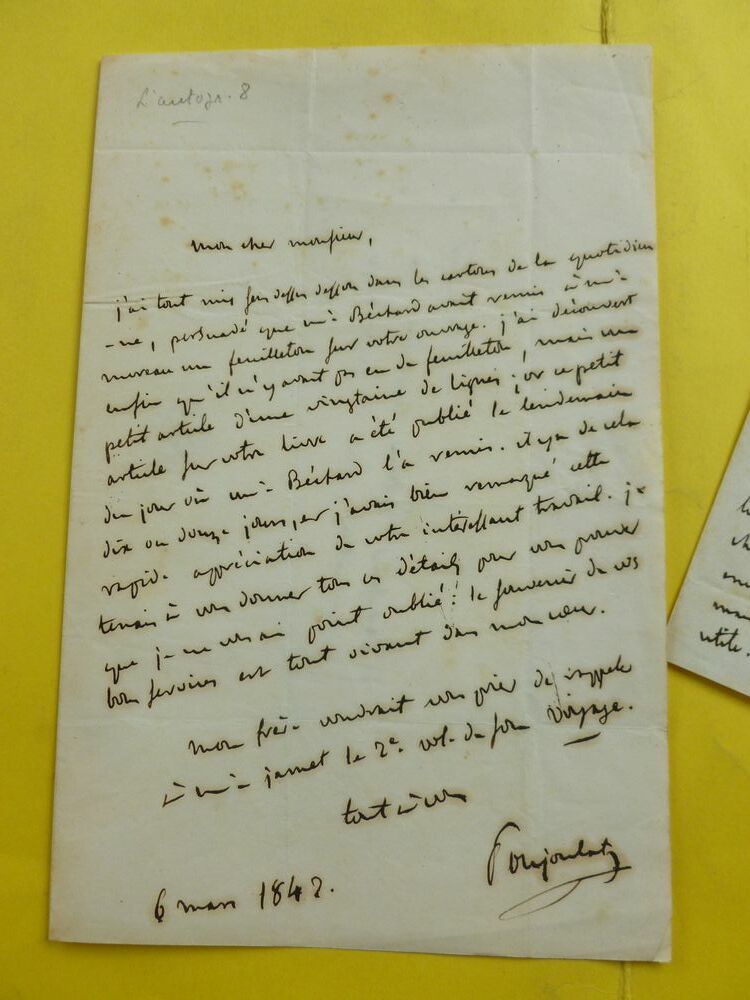 L'autogr. 8
mon cher monsieur,
j'ai tout mis sens dessus dessous dans les cartons de la quotidien
-ne, persuadé que mr Béchard avait remis à mr
moreau un feuilleton sur votre ouvrage. j'ai découvert
enfin qu'il n'y avait pas eu de feuilleton, mais un
petit article d'une vingtaine de lignes; or ce petit
article sur votre livre a été publié le lendemain
du jour où mr Béchard l'a remis. il y a de cela
dix ou douze jours, et j'avais bien remarqué cette
rapide appréciation de votre intéressant travail. je
tenais à vous donner tous ces détails pour vous prouver
que je ne vous ai point oublié: le souvenir de vos
bons services est tout vivant dans mon cœur.
mon frère voudrait vous prier de rappeler
à mr jannet le 2e vol. de son voyage.
tout à vous
Poujoulat
6 mars 1842.
utile.